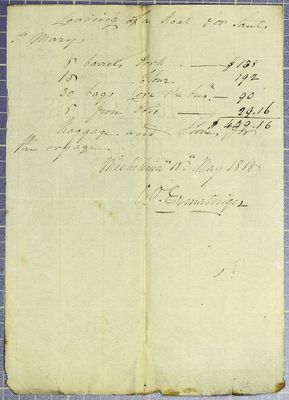 Loading of a Boat for Sault
St Marys
8 barrels Pork — $ 138
18 " flour 192
30 bags Corn — 90
5 29.16
$ 449.16
baggage and Stores for
the voyage.
Michilima 18th May 1818
C. O. Ermatinger